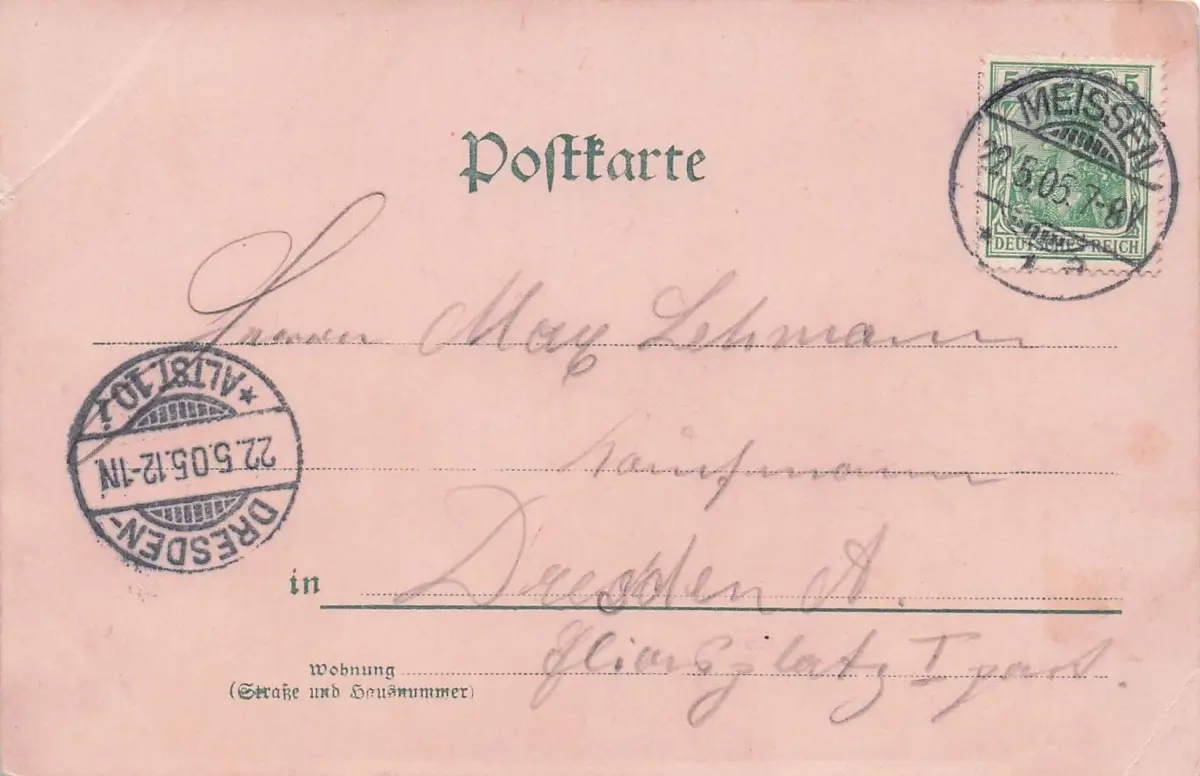 5 5
DEUTSCHES REICH
MEISSEN
22.5.05. 7-8V
Postkarte
Herrn Max Lehmann
*ALTST. 10.
22.5.05.12-1N
DRESDEN-
Kaufmann
in Dresden A.
Wohnung Eliasplatz I part.
(Straße und Hausnummer)